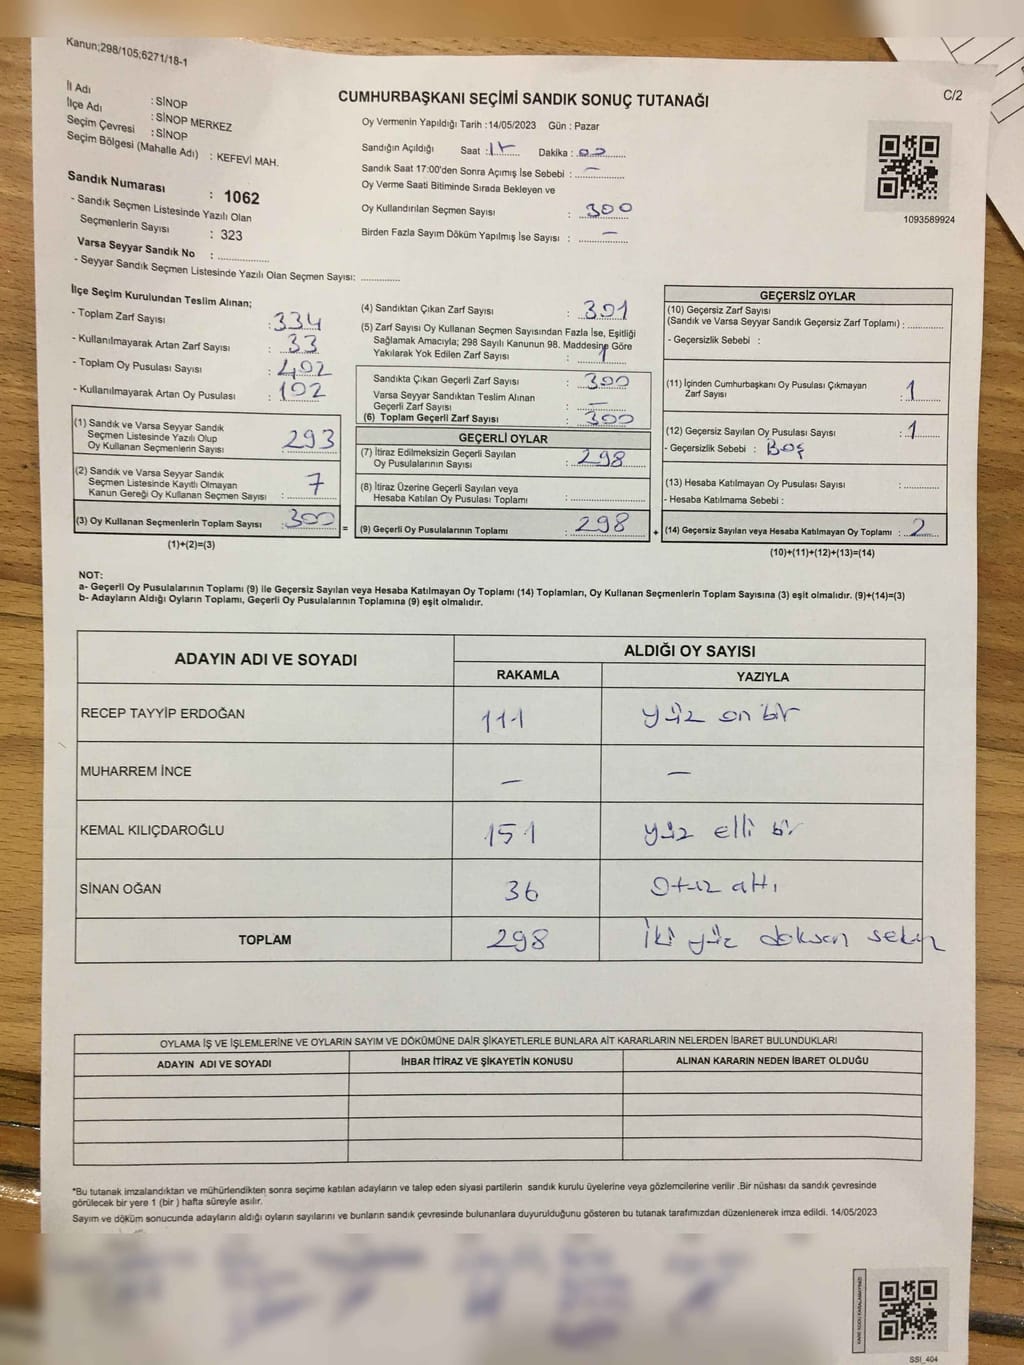 Kanun;298/105;6271/18-1
C/2
CUMHURBAŞKANI SEÇİMİ SANDIK SONUÇ TUTANAĞI
İl Adı : SİNOP
İlçe Adı : SİNOP MERKEZ
Seçim Çevresi : SİNOP
Seçim Bölgesi (Mahalle Adı) : KEFEVİ MAH.
Sandık Numarası : 1062
- Sandık Seçmen Listesinde Yazılı Olan
Seçmenlerin Sayısı : 323
Varsa Seyyar Sandık No : ...............
- Seyyar Sandık Seçmen Listesinde Yazılı Olan Seçmen Sayısı: ............
Oy Vermenin Yapıldığı Tarih :14/05/2023 Gün : Pazar
Sandığın Açıldığı Saat : Dakika : 00
Sandık Saat 17:00'den Sonra Açımış İse Sebebi : —
Oy Verme Saati Bitiminde Sırada Bekleyen ve
Oy Kullandırılan Seçmen Sayısı : 300
Birden Fazla Sayım Döküm Yapılmış İse Sayısı : —
1093589924
İlçe Seçim Kurulundan Teslim Alınan;
- Toplam Zarf Sayısı : 334
- Kullanılmayarak Artan Zarf Sayısı : 33
- Toplam Oy Pusulası Sayısı : 402
- Kullanılmayarak Artan Oy Pusulası : 102
(1) Sandık ve Varsa Seyyar Sandık
Seçmen Listesinde Yazılı Olup
Oy Kullanan Seçmenlerin Sayısı : 293
(2) Sandık ve Varsa Seyyar Sandık
Seçmen Listesinde Kayıtlı Olmayan
Kanun Gereği Oy Kullanan Seçmen Sayısı : 7
(3) Oy Kullanan Seçmenlerin Toplam Sayısı : 300 =
(1)+(2)=(3)
(4) Sandıktan Çıkan Zarf Sayısı : 301
(5) Zarf Sayısı Oy Kullanan Seçmen Sayısından Fazla İse, Eşitliği
Sağlamak Amacıyla; 298 Sayılı Kanunun 98. Maddesine Göre
Yakılarak Yok Edilen Zarf Sayısı : 1
Sandıkta Çıkan Geçerli Zarf Sayısı : 300
Varsa Seyyar Sandıktan Teslim Alınan
Geçerli Zarf Sayısı : —
(6) Toplam Geçerli Zarf Sayısı : 300
GEÇERLİ OYLAR
(7) İtiraz Edilmeksizin Geçerli Sayılan
Oy Pusulalarının Sayısı : 298
(8) İtiraz Üzerine Geçerli Sayılan veya
Hesaba Katılan Oy Pusulası Toplamı :
(9) Geçerli Oy Pusulalarının Toplamı : 298 +
GEÇERSİZ OYLAR
(10) Geçersiz Zarf Sayısı
(Sandık ve Varsa Seyyar Sandık Geçersiz Zarf Toplamı) : ...........
- Geçersizlik Sebebi :
(11) İçinden Cumhurbaşkanı Oy Pusulası Çıkmayan
Zarf Sayısı : 1
(12) Geçersiz Sayılan Oy Pusulası Sayısı : 1
- Geçersizlik Sebebi : Boş
(13) Hesaba Katılmayan Oy Pusulası Sayısı :
- Hesaba Katılmama Sebebi :
(14) Geçersiz Sayılan veya Hesaba Katılmayan Oy Toplamı : 2
(10)+(11)+(12)+(13)=(14)
NOT:
a- Geçerli Oy Pusulalarının Toplamı (9) ile Geçersiz Sayılan veya Hesaba Katılmayan Oy Toplamı (14) Toplamları, Oy Kullanan Seçmenlerin Toplam Sayısına (3) eşit olmalıdır. (9)+(14)=(3)
b- Adayların Aldığı Oyların Toplamı, Geçerli Oy Pusulalarının Toplamına (9) eşit olmalıdır.
ADAYIN ADI VE SOYADI
ALDIĞI OY SAYISI
RAKAMLA YAZIYLA
RECEP TAYYİP ERDOĞAN 111 yüz on bir
MUHARREM İNCE — —
KEMAL KILIÇDAROĞLU 151 yüz elli bir
SİNAN OĞAN 36 Otuz altı
TOPLAM 298 İki yüz doksan sekiz
OYLAMA İŞ VE İŞLEMLERİNE VE OYLARIN SAYIM VE DÖKÜMÜNE DAİR ŞİKAYETLERLE BUNLARA AİT KARARLARIN NELERDEN İBARET BULUNDUKLARI
ADAYIN ADI VE SOYADI İHBAR İTİRAZ VE ŞİKAYETİN KONUSU ALINAN KARARIN NEDEN İBARET OLDUĞU
*Bu tutanak imzalandıktan ve mühürlendikten sonra seçime katılan adayların ve talep eden siyasi partilerin sandık kurulu üyelerine veya gözlemcilerine verilir .Bir nüshası da sandık çevresinde
görülecek bir yere 1 (bir ) hafta süreyle asılır.
Sayım ve döküm sonucunda adayların aldığı oyların sayılarını ve bunların sandık çevresinde bulunanlara duyurulduğunu gösteren bu tutanak tarafımızdan düzenlenerek imza edildi. 14/05/2023
SSI_404